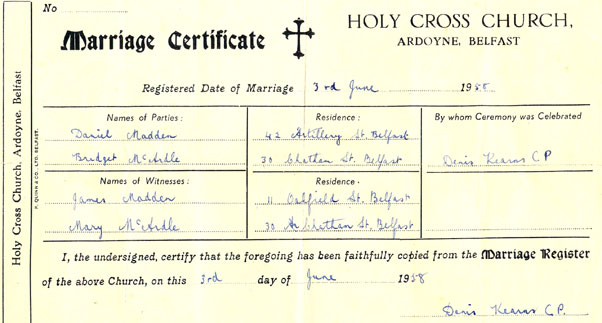 No
HOLY CROSS CHURCH,
Marriage Certificate
ARDOYNE, BELFAST
Registered Date of Marriage 3rd June 1958
Names of Parties: Residence: By whom Ceremony was Celebrated
Daniel Madden 42 Artillery St. Belfast
Bridget McArdle 30 Chatham St. Belfast Denis Kearns C.P.
Names of Witnesses: Residence:
James Madden 11 Oakfield St. Belfast
Mary McArdle 30 Chatham St. Belfast
I, the undersigned, certify that the foregoing has been faithfully copied from the Marriage Register
of the above Church, on this 3rd day of June 1958
Denis Kearns C.P.
Holy Cross Church, Ardoyne, Belfast
P. QUINN & CO., LTD. BELFAST.